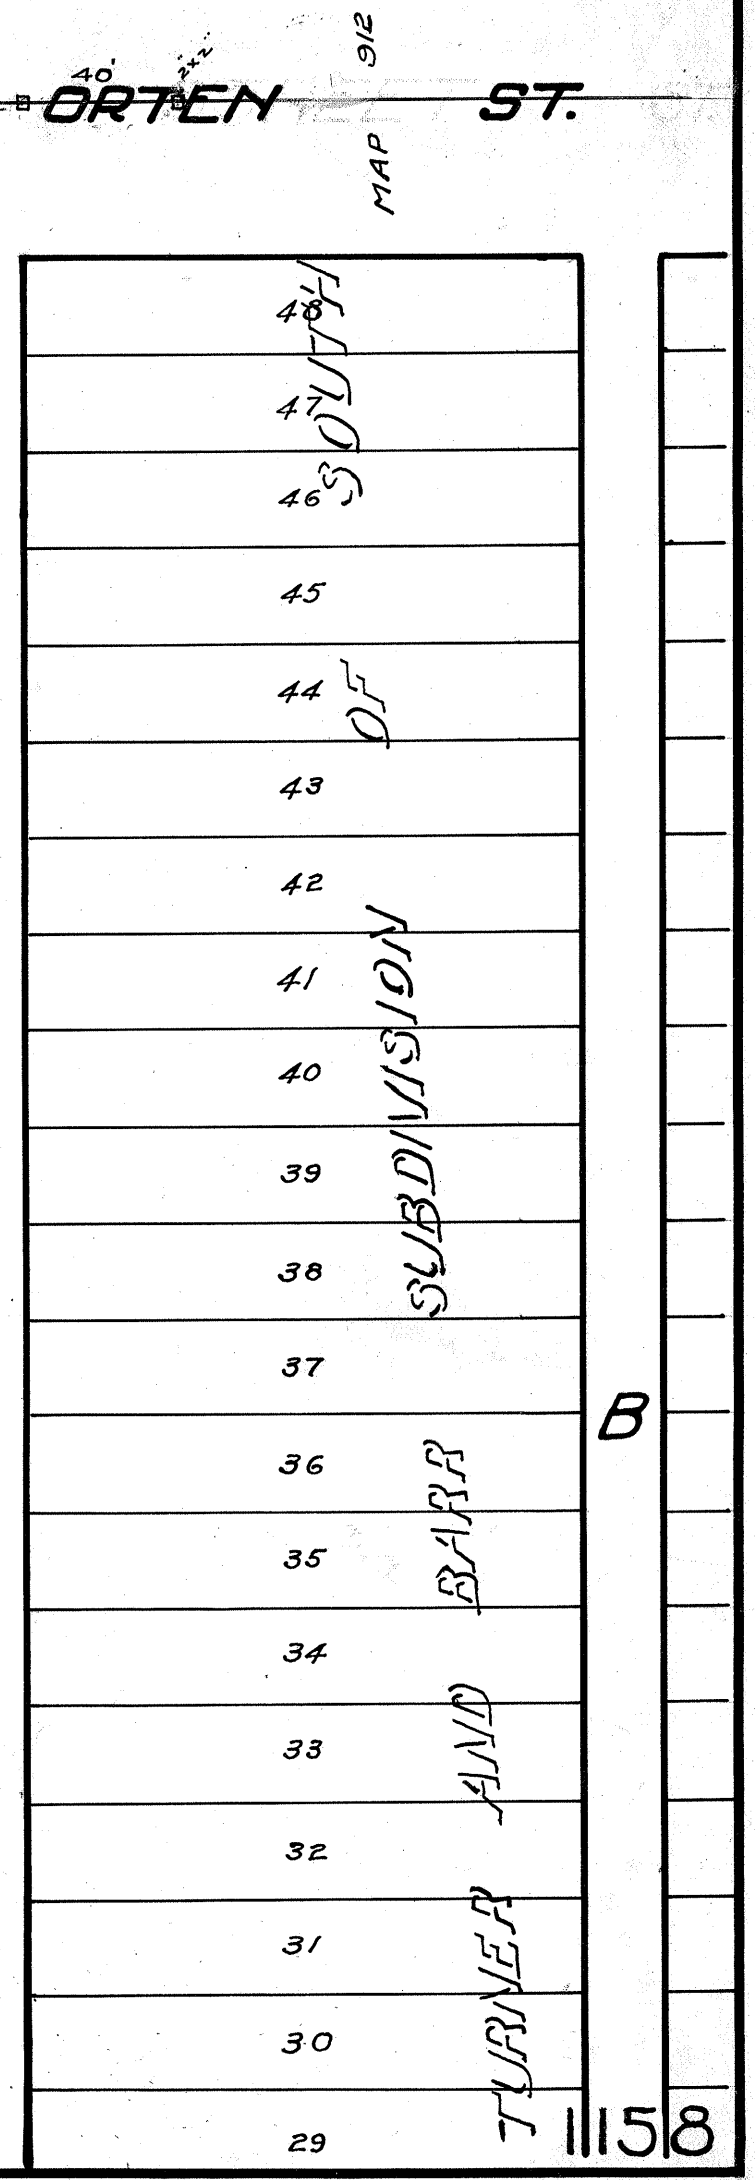 912
40'
2"x2"
ORTEN ST.
MAP
48
47
46
45
44
43
42
41
40
39
38
37
36
35
34
33
32
31
30
29
TURNER AND BARR SUBDIVISION OF SOUTH
B
1158